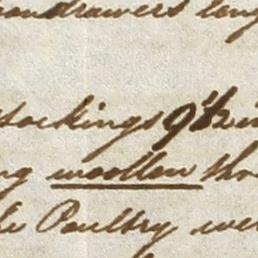 drawers long
stockings 9½ in
ng woollen tho
he Poultry we